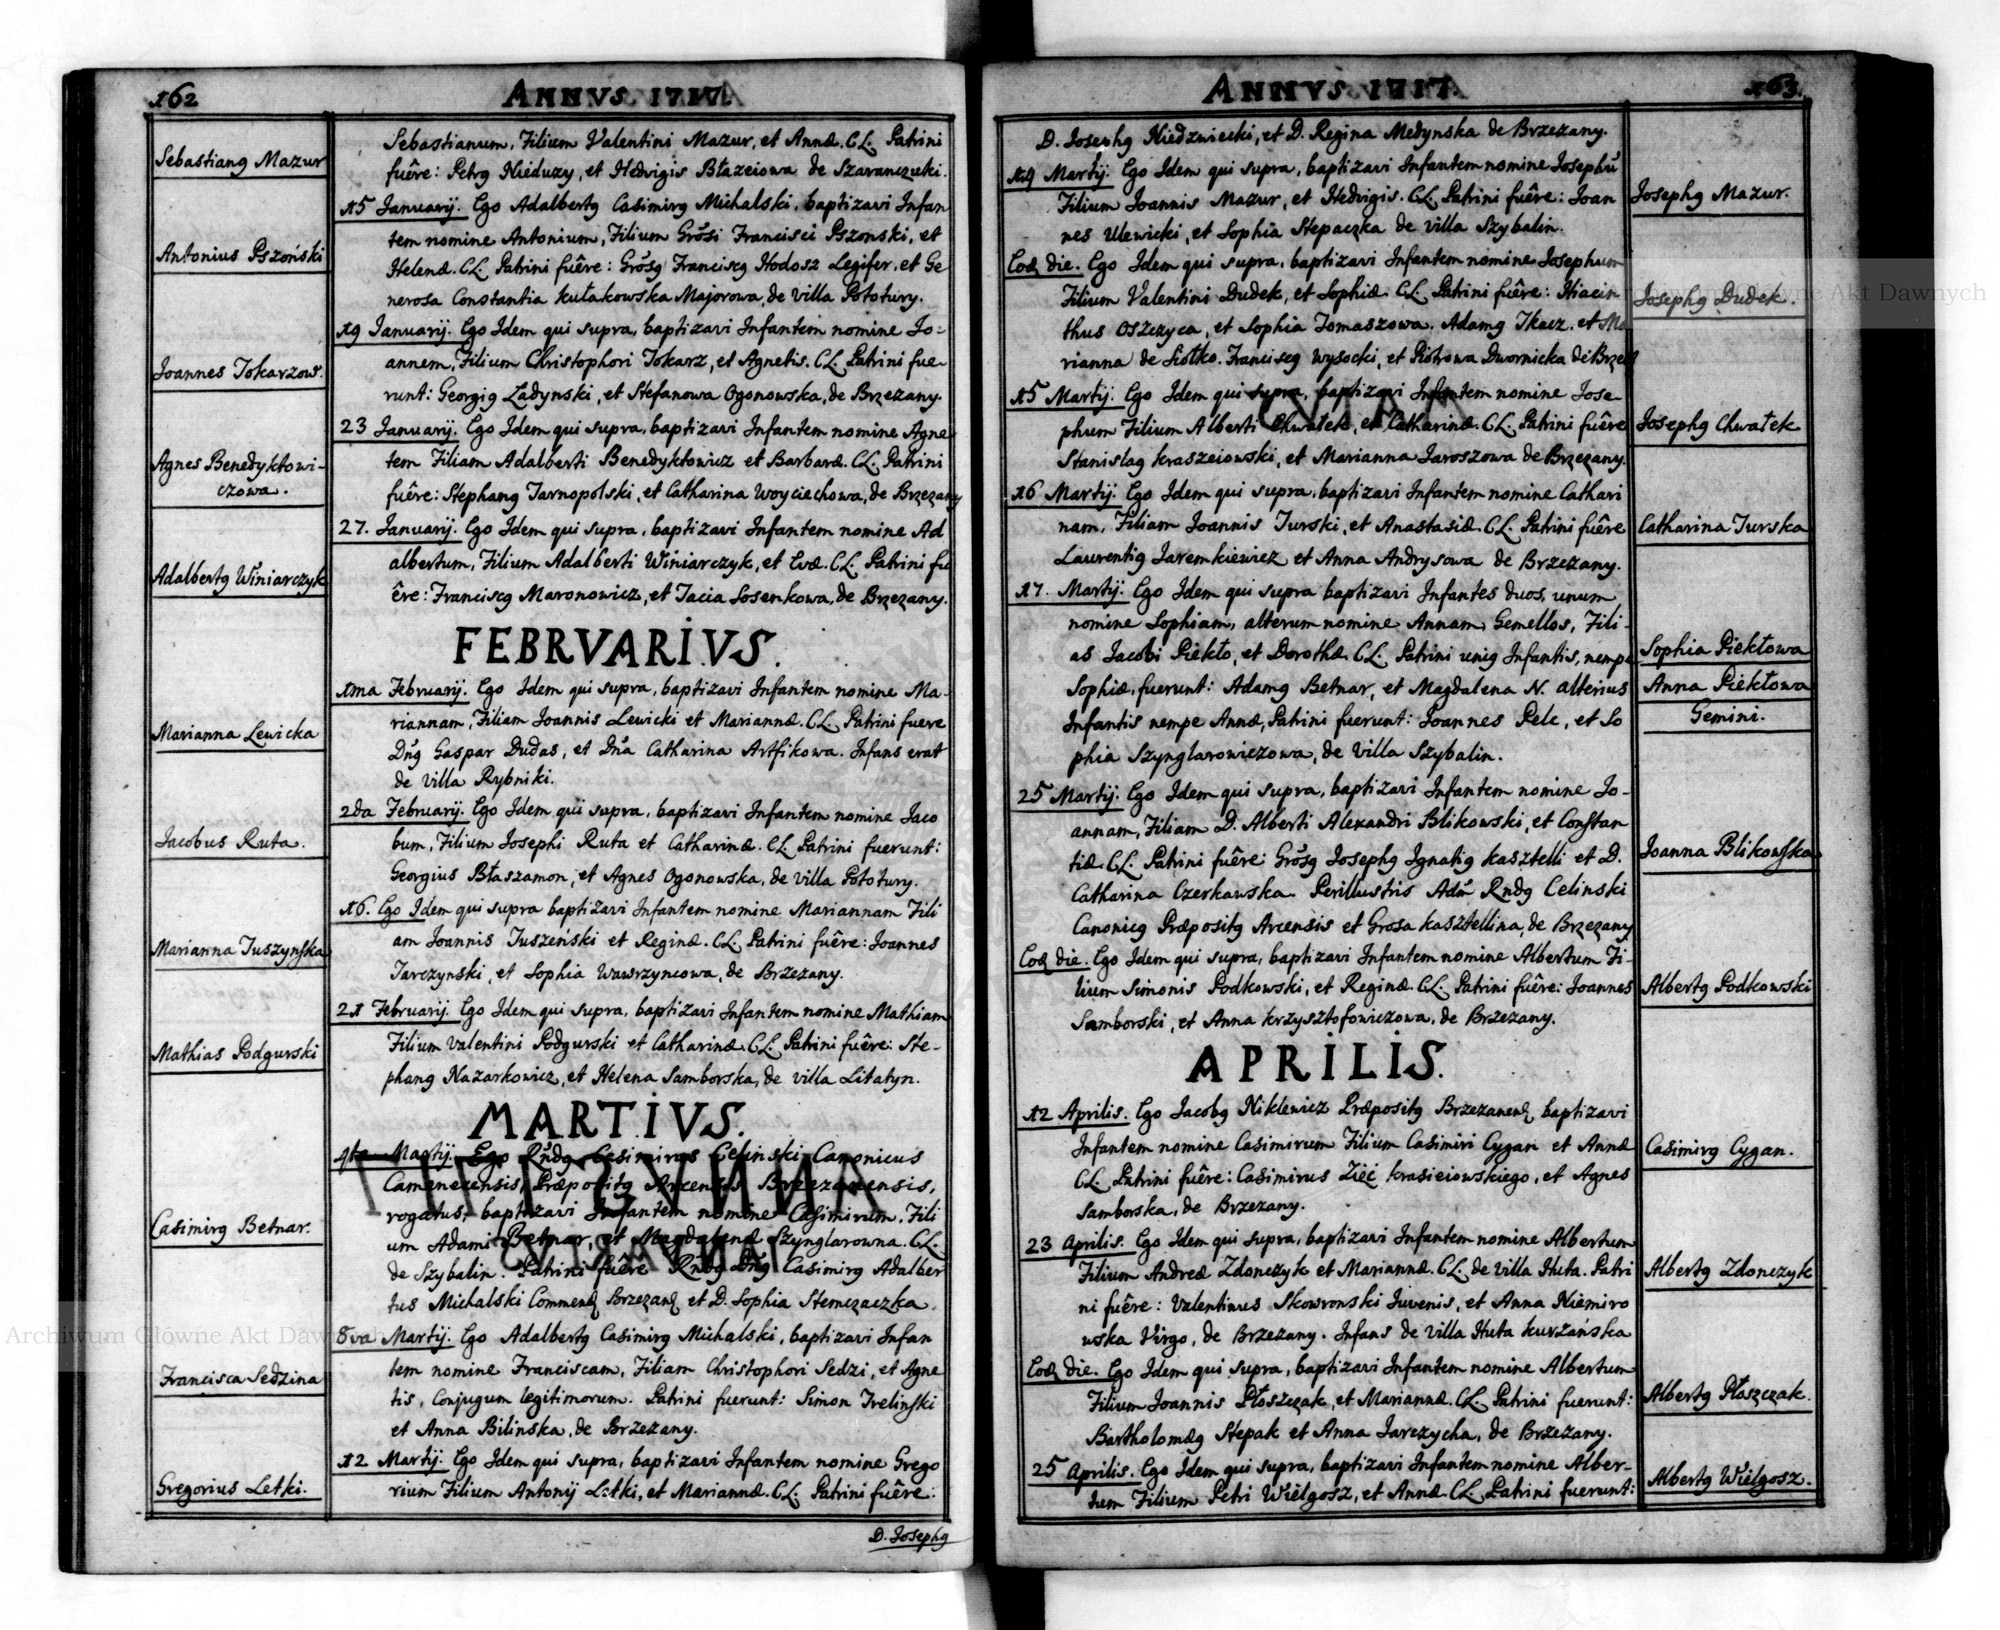 162
ANNVS. 1717.
Sebastiang Mazur
Sebastianum, Filium Valentini Mazur, et Annæ. CL. Patrini
fuêre: Petrg Nieduzy, et Hedvigis Błazeiowa de Szaranczuki.
15 Januarij. Ego Adalbertg Casimirg Michalski, baptizavi Infan
Antonius Pszoński
tem nomine Antonium, Filium Grosi Francisci Pszonski, et
Helenæ. CL. Patrini fuêre: Grosg Franciscg Hodosz Legifer, et Ge
nerosa Constantia Kułakowska Majorowa, de villa Potutury.
19 Januarij. Ego Idem qui supra, baptizavi Infantem nomine Jo-
Joannes Tokarzow.
annem, Filium Christophori Tokarz, et Agnetis. CL. Patrini fue-
runt: Georgig Ladynski, et Stefanowa Ogonowska, de Brzezany.
23 Januarij. Ego Idem qui supra, baptizavi Infantem nomine Agne
Agnes Benedyktowi-
czowa.
tem Filiam Adalberti Benedyktowicz et Barbaræ. CL. Patrini
fuêre: Stephang Tarnopolski, et Catharina Woyciechowa, de Brzezany
27. Januarij. Ego Idem qui supra, baptizavi Infantem nomine Ad
Adalbertg Winiarczyk
albertum, Filium Adalberti Winiarczyk, et Evæ. CL. Patrini fu
êre: Franciscg Maronowicz, et Tacia Sosenkowa, de Brzezany.
FEBRVARIVS.
1ma Februarij. Ego Idem qui supra, baptizavi Infantem nomine Ma-
Marianna Lewicka
riannam, Filiam Joannis Lewicki et Mariannæ. CL. Patrini fuere
Dng Gaspar Dudas, et Dna Catharina Artfikowa. Infans erat
de villa Rybniki.
2da Februarij. Ego Idem qui supra, baptizavi Infantem nomine Jaco
Jacobus Ruta.
bum, Filium Josephi Ruta et Catharinæ. CL Patrini fuerunt:
Georgius Błaszamon, et Agnes Ogonowska, de villa Potutury.
16. Ego Idem qui supra baptizavi Infantem nomine Mariannam Fili
Marianna Tuszynska
am Joannis Tuszeński et Reginæ. CL. Patrini fuêre: Joannes
Tarczynski, et Sophia Wawrzyncowa, de Brzezany.
21 Februarij. Ego Idem qui supra, baptizavi Infantem nomine Mathiam
Mathias Podgurski
Filium Valentini Podgurski et Catharinæ. CL. Patrini fuêre: Ste-
phang Nazarkowicz, et Helena Samborska, de villa Litatyn.
MARTIVS.
4ta Martij. Ego Rndg Casimirus Celinski Canonicus
Camenecensis, Præpositg Arcensis Brzezanensis,
rogatus, baptizavi Infantem nomine Casimirum, Fili
Casimirg Betnar.
um Adami Betnar, et Magdalenæ Szynglarowna. CL.
de Szybalin. Patrini fuêre Rndg Dng Casimirg Adalber
tus Michalski Commend Brzezanę et D. Sophia Stemczaczka.
8va Martij. Ego Adalbertg Casimirg Michalski, baptizavi Infan
Francisca Sedzina
tem nomine Franciscam, Filiam Christophori Sedzi, et Agne
tis, Conjugum legitimorum. Patrini fuerunt: Simon Irelinski
et Anna Bilinska, de Brzezany.
12 Martij. Ego Idem qui supra, baptizavi Infantem nomine Grego
Gregorius Letki.
rium Filium Antonij Letki, et Mariannæ. CL. Patrini fuêre:
D. Josephg
163.
ANNVS 1717.
D. Josephg Niedzwiecki, et D. Regina Medynska de Brzezany.
14 Martij. Ego Idem qui supra, baptizavi Infantem nomine Josephũ
Josephg Mazur.
Filium Joannis Mazur, et Hedvigis. CL. Patrini fuêre: Joan
nes Ulewicki, et Sophia Stepaczka de villa Szybalin.
Eoд die. Ego Idem qui supra, baptizavi Infantem nomine Josephum
Josephg Dudek.
Filium Valentini Dudek, et Sophiæ. CL. Patrini fuêre: Hiacin
thus Oszczyca, et Sophia Tomaszowa. Adamg Tkacz. et Ma
rianna de Siołko. Franciscg Wysocki, et Piotrowa Dwornicka de Brzez
15 Martij. Ego Idem qui supra, baptizavi Infantem nomine Jose-
Josephg Chwałek
phum Filium Alberti Chwałek, et Catharinæ. CL. Patrini fuêre
Stanislag Kraszeiowski, et Marianna Jaroszowa de Brzezany.
16 Martij. Ego Idem qui supra, baptizavi Infantem nomine Cathari
Catharina Turska
nam, Filiam Joannis Turski, et Anastasiæ. CL. Patrini fuêre
Laurentig Jaremkiewicz et Anna Andrysowa de Brzezany.
17. Martij. Ego Idem qui supra baptizavi Infantes duos, unum
nomine Sophiam, alterum nomine Annam, Gemellos, Fili-
Sophia Piekłowa
as Jacobi Piekło, et Dorothæ. CL. Patrini unig Infantis, nempe
Anna Piekłowa
Sophiæ, fuerunt: Adamg Betnar, et Magdalena N. alterius
Gemini.
Infantis nempe Annæ, Patrini fuerunt: Joannes Pelc, et So
phia Szynglarowiczowa, de villa Szybalin.
25 Martij. Ego Idem qui supra, baptizavi Infantem nomine Jo-
annam, Filiam D. Alberti Alexandri Blikowski, et Constan
Joanna Blikowska
tiæ. CL. Patrini fuêre: Grosg Josephg Ignatig Kasztelli et D.
Catharina Czerkawska. Perillustris Adm Rndg Celinski
Canonicg Præpositg Arcensis et Grosa Kasztellina, de Brzezany
Eoд die. Ego Idem qui supra, baptizavi Infantem nomine Albertum Fi-
Albertg Podkowski
lium Simonis Podkowski, et Reginæ. CL. Patrini fuêre: Joannes
Samborski, et Anna Krzysztofowiczowa, de Brzezany.
APRILIS.
12 Aprilis. Ego Jacobg Niklewicz Præpositg Brzezanenę baptizavi
Casimirg Cygan.
Infantem nomine Casimirum Filium Casimiri Cygan et Annæ
CL. Patrini fuêre: Casimirus Zięć Krasieiowskiego, et Agnes
Samborska, de Brzezany.
23 Aprilis. Ego Idem qui supra, baptizavi Infantem nomine Albertum
Albertg Zdonczyk
Filium Andreæ Zdonczyk et Mariannæ. CL. de villa Huta. Patri
ni fuêre: Valentinus Skowronski Iuvenis, et Anna Niemiro
wska Virgo, de Brzezany. Infans de villa Huta Kurzańska
Eoд die. Ego Idem qui supra, baptizavi Infantem nomine Albertum
Albertg Płaszczak.
Filium Joannis Płoszczak, et Mariannæ. CL. Patrini fuerunt:
Bartholomæg Stepak et Anna Jarczycha, de Brzezany.
25 Aprilis. Ego Idem qui supra, baptizavi Infantem nomine Alber-
Albertg Wielgosz.
tum Filium Petri Wielgosz, et Annæ. CL. Patrini fuerunt:
Archiwum Główne Akt Dawnych
Archiwum Główne Akt Dawnych